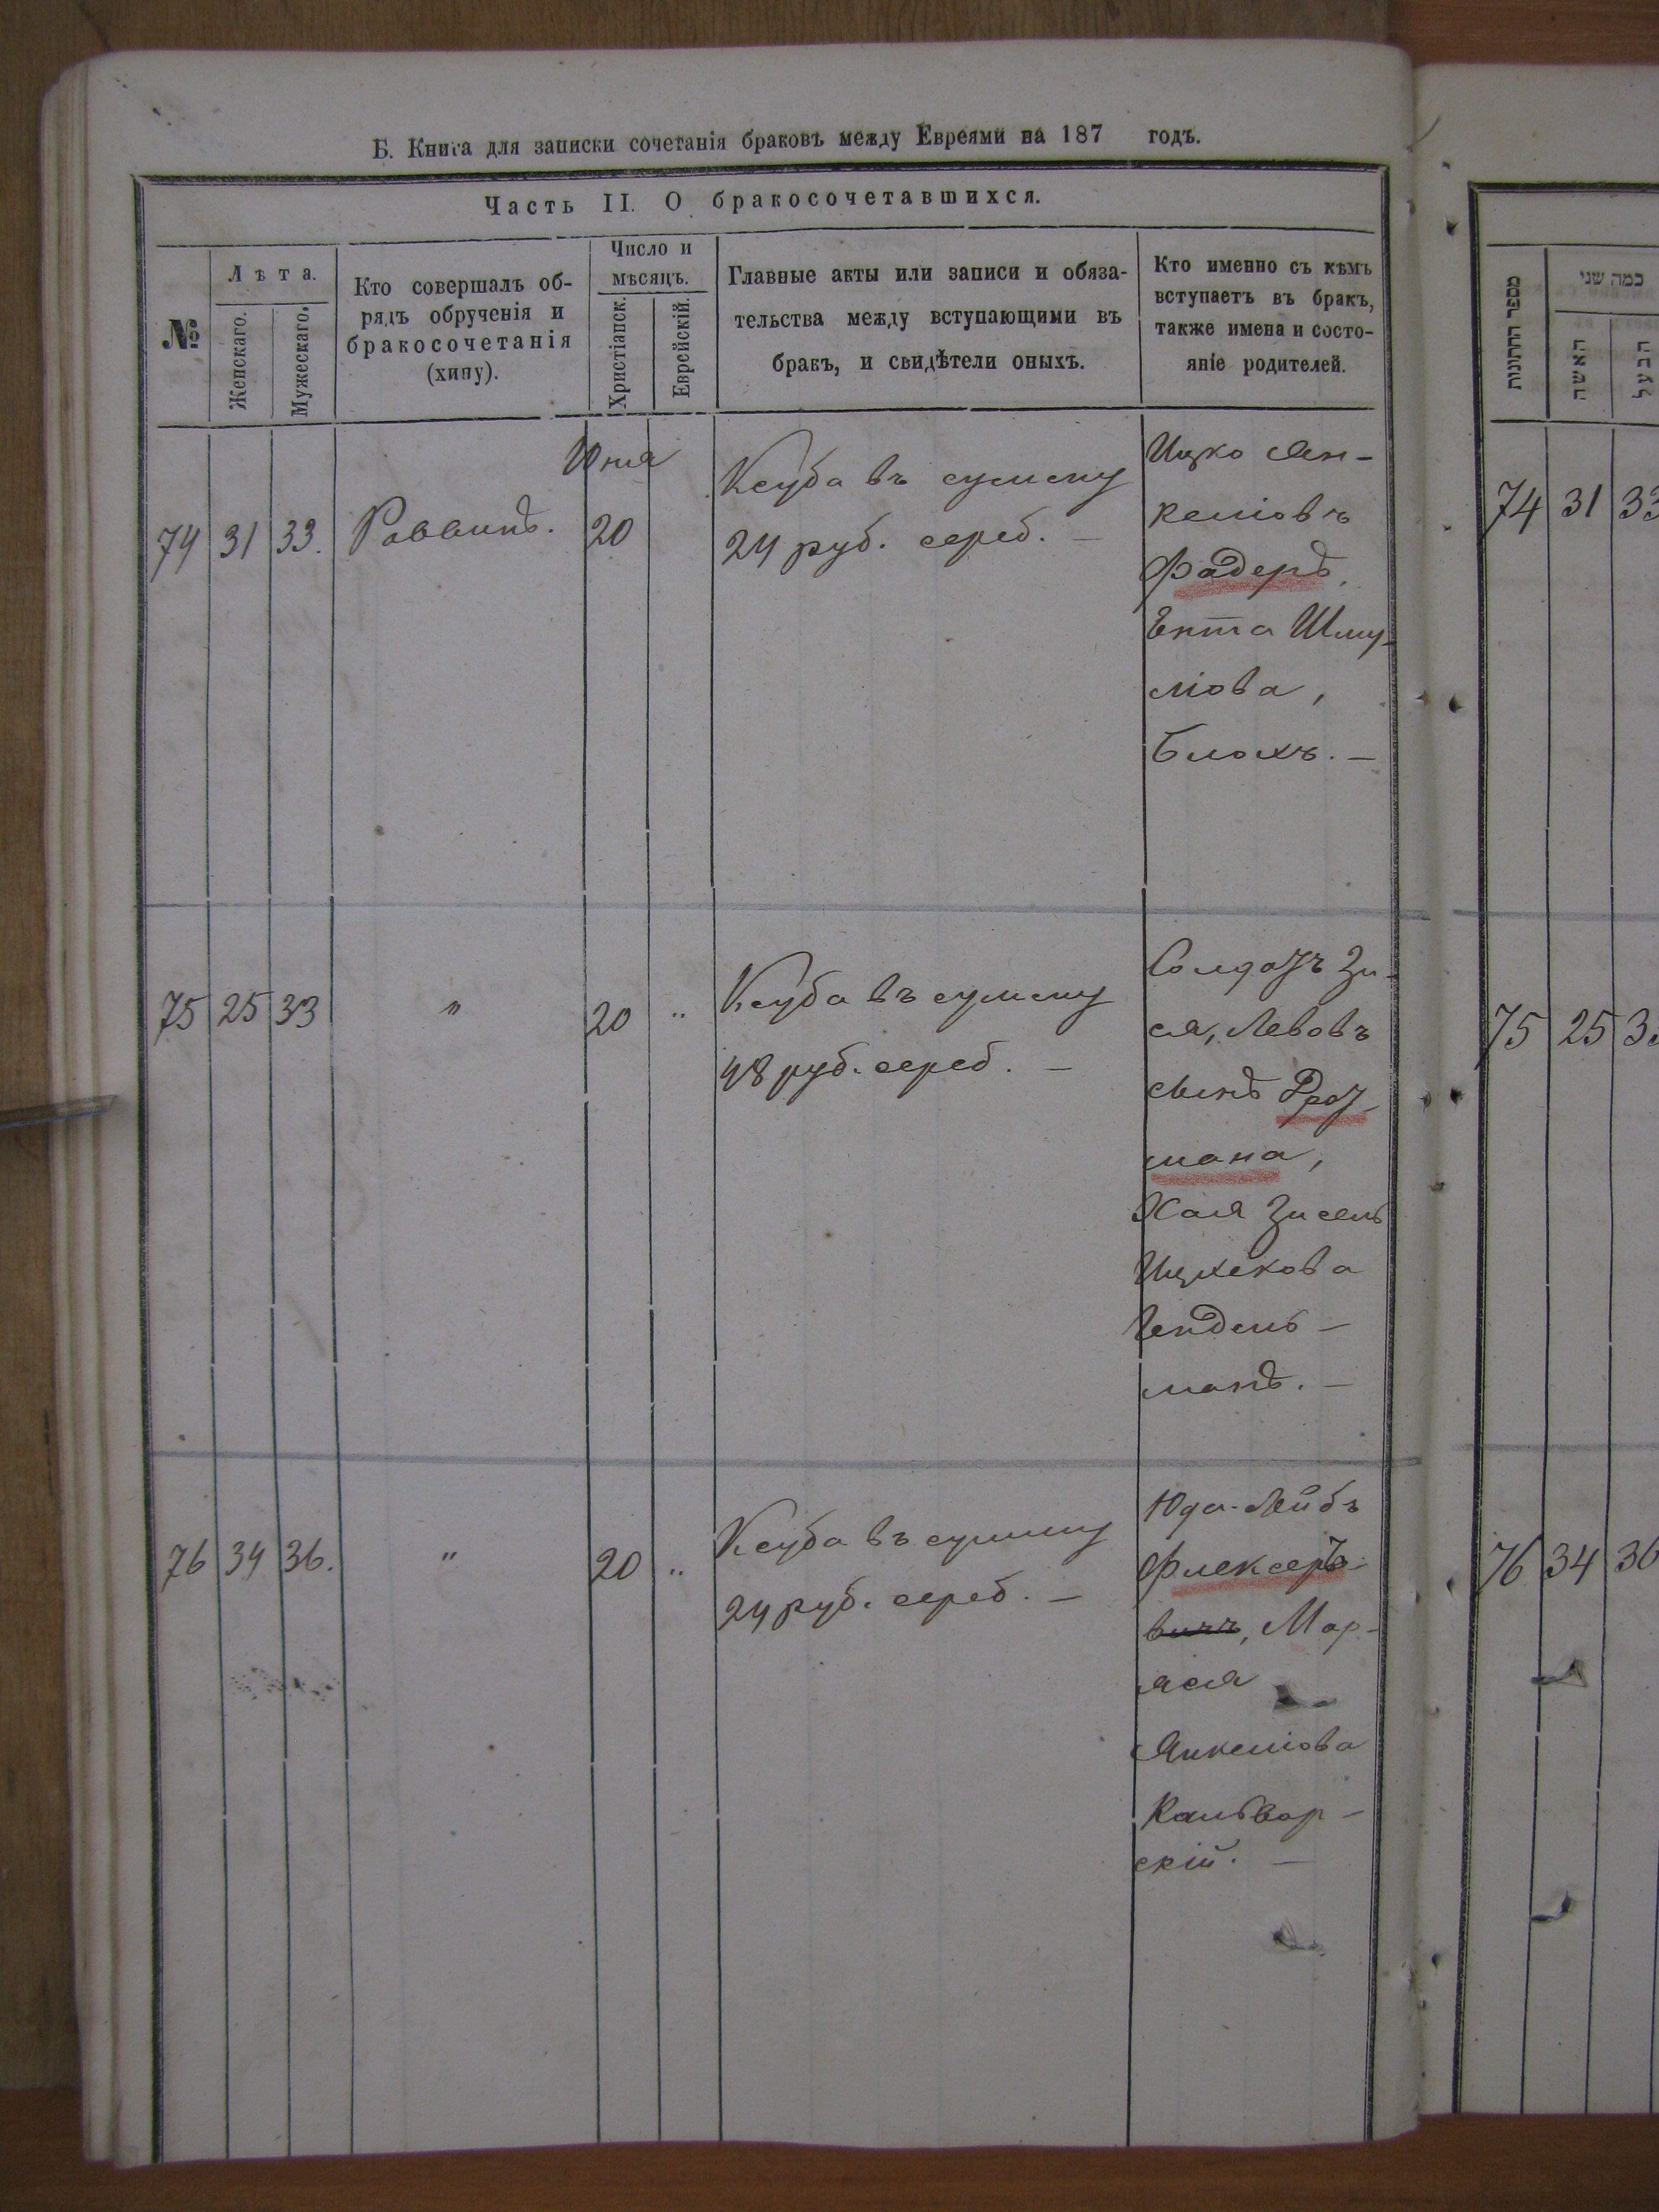 Б. Книга для записки сочетанія браковъ между Евреями на 187 годъ.
Часть II. О бракосочетавшихся.
№
Лѣта.
Женскаго.
Мужескаго.
Кто совершалъ об-
рядъ обрученія и
бракосочетанія
(хипу).
Число и
мѣсяцъ.
Христіанск.
Еврейскій.
Главные акты или записи и обяза-
тельства между вступающими въ
бракъ, и свидѣтели оныхъ.
Кто именно съ кѣмъ
вступаетъ въ бракъ,
также имена и состо-
яніе родителей.
Юня
74 31 33. Раввинъ. 20
Ксуба въ сумму
24 руб. сереб. —
Ицко Ян-
келіовъ
Фадеръ,
Ента Шму-
ліова,
Блохъ. —
75 25 33 " 20 "
Ксуба въ сумму
48 руб. сереб. —
Солдатъ Зи-
ся, Левовъ
сынъ
мана,
Хая Зисель
Ицхекова
Гендель-
манъ. —
76 34 36. " 20 "
Ксуба въ сумму
24 руб. сереб. —
Юда-Лейбъ
Флексеръ
вичъ, Мар-
яся
Янкеліова
Кальвар-
скій. —
מספר החתונות
כמה שני
האשה
הבעל
74 31 33
75 25 33
76 34 36